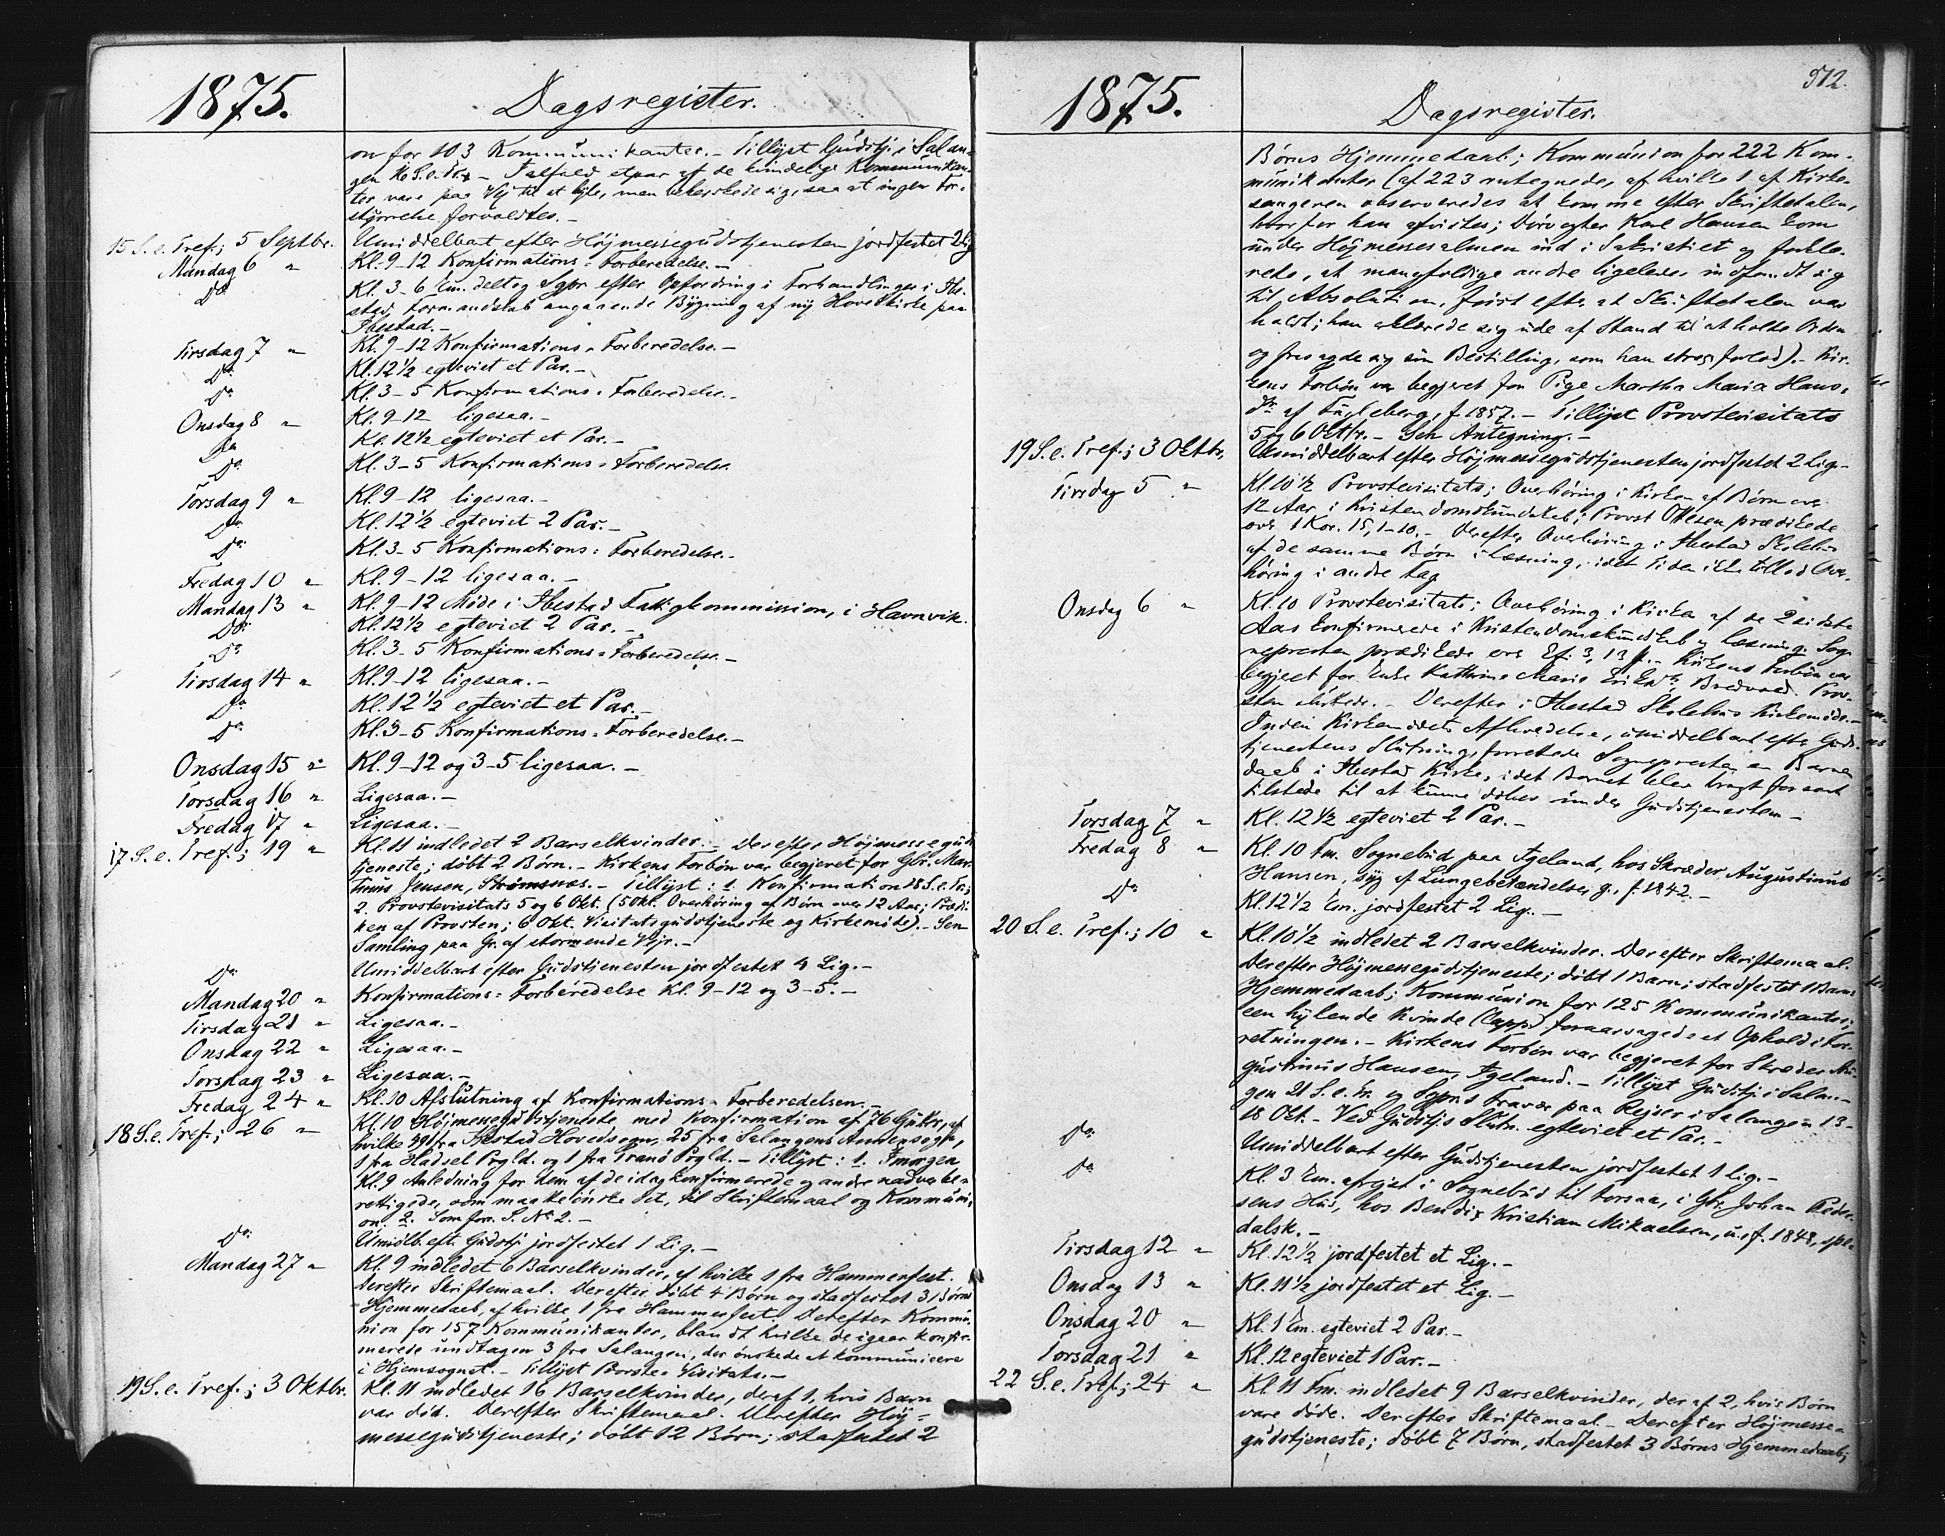 1875.
Dagsregister.
on for 103 Kommunikanter. – Tillyst Gudstj. i Salan-
gen 16 S. e. Tr. – Tvende af de kvindelige Kommunikan-
ter vare paa Vej til at hyle, men beherskede sig, saa at ingen For-
styrrelse forvoldtes. –
15 S. e. Tref.; 5 Septbr. Umiddelbart efter Højmessegudstjenesten jordfestet 2 Lig
Mandag 6 " Kl. 9-12 Konfirmations-Forberedelse. –
Do Kl. 3-6 Em. deltog Sgpr. efter Opfordring i Forhandlinger i Ibe-
stad Formandskab angaaende Bygning af ny Hovedkirke paa
Ibestad. –
Tirsdag 7 " Kl. 9-12 Konfirmations-Forberedelse. –
Do Kl. 12½ egteviet et Par. –
Do Kl. 3-5 Konfirmations-Forberedelse. –
Onsdag 8 " Kl. 9-12 ligesaa. –
Do Kl. 12½ egteviet et Par. –
Do Kl. 3-5 Konfirmations-Forberedelse.
Torsdag 9 " Kl. 9-12 ligesaa. –
Do Kl. 12½ egteviet 2 Par. –
Do Kl. 3-5 Konfirmations-Forberedelse. –
Fredag 10 " Kl. 9-12 ligesaa. –
Mandag 13 " Kl. 9-12 Møde i Ibestad Fattigkommission, i Havnvik.
Do Kl. 12½ egteviet 2 Par. –
Do Kl. 3-5 Konfirmations-Forberedelse –
Tirsdag 14 " Kl. 9-12 ligesaa. –
Do Kl. 12½ egteviet et Par. –
Do Kl. 3-5 Konfirmations-Forberedelse. –
Onsdag 15 " Kl. 9-12 og 3-5 ligesaa. –
Torsdag 16 " Ligesaa. –
Fredag 17 " Ligesaa. –
17 S. e. Tref.; 19 " Kl. 11 indledet 2 Barselkvinder. – Derefter Højmessegud-
tjeneste; døbt 2 Børn. – Kirkens Forbøn var begjeret for Gbr. Mar-
tinus Jensen, Strømsnæs. – Tillyst: 1. Konfirmation 18 S. e. Tr.;
2. Provstevisitats 5 og 6 Okt. (5 Okt. Overhøring af Børn over 12 Aar; Prædi-
ken af Provsten; 6 Okt. Visitatsgudstjeneste og Kirkemøde). – Sen
Samling paa Gr. af stormende Vejr. –
Do Umiddelbart efter Gudstjenesten jordfestet 4 Lig. –
Mandag 20 " Konfirmations-Forberedelse Kl. 9-12 og 3-5. –
Tirsdag 21 " Ligesaa. –
Onsdag 22 " Ligesaa. –
Torsdag 23 " Ligesaa. –
Fredag 24 " Kl. 10 Afslutning af Konfirmations-Forberedelsen. –
18 S. e. Tref.; 26 " Kl. 10 Højmessegudstjeneste med Konfirmation af 76 Gutter, af
hvilke fra Ibestad Hovedsogn, 25 fra Salangens Annexsogn,
1 fra Hadsel Prgld. og 1 fra Tranø Prgld. – Tillyst: 1. Imorgen
Kl. 9 Anledning for dem af de idag konfirmerede og andre nadverbe-
rettigede, som maatte ønske det, til Skriftemaal og Kommuni-
on. 2. Som forr. S. No 2. –
Do Umidlb. eft. Gudstj. jordfestet 1 Lig. –
Mandag 27 " Kl. 9 indledet 6 Barselkvinder, af hvilke 1 fra Hammerfest.
Derefter Skriftemaal. Derefter døbt 4 Børn og stadfestet 3 Børns
Hjemmedaab, af hvilke 1 fra Hammerfest. Derefter Kommu-
nion for 157 Kommunikanter, blandt hvilke de igaar konfir-
merede undtagen 3 fra Salangen, der ønskede at kommunicere
i Hjemsognet. – Tillyst Provste-Visitats. –
19 S. e. Tref.; 3 Oktbr. Kl. 11 indledet 16 Barselkvinder, deraf 1, hvis Barn
var død. Derefter Skriftemaal. Derefter Høj-
messegudstjeneste; døbt 12 Børn; stadfestet 2
512.
1875.
Dagsregister.
Børns Hjemmedaab; Kommunion for 222 Kom-
munikanter (af 223 antegnede, af hvilke 1 af Kirke-
sangeren observeredes at komme efter Skriftetalen,
hvorfor han afvistes; Dørvogter Karl Hansen kom
under Højmessesalmen ind i Sakristiet og forkla-
rede, at mangfoldige andre ligeledes indfandt sig
til Absolution, først efter at Skriftetalen var
holdt; han erklærede sig ude af Stand til at holde Orden
og fresagde sig sin Bestilling, som han strax forlod). – Kir-
kens Forbøn var begjeret for Pige Martha Maria Hans-
dtr. af Fugleberg, f. 1857. – Tillyst Provstevisitats
5 og 6 Oktbr. – Sen Antegning. –
19 S. e. Tref.; 3 Oktbr. Umiddelbart efter Højmessegudstjenesten jordfestet 2 Lig. –
Tirsdag 5 " Kl. 10½ Provstevisitats; Overhøring i Kirken af Børn over
12 Aar i Kristendomskundskab; Provst Ottesen prædikede
over 1 Kor. 15, 1-10. – Derefter Overhøring i Ibestad Skolehus
af de samme Børn i Læsning, idet Tiden ikke tillod Over-
høring i andre Fag
Onsdag 6 " Kl. 10 Provstevisitats; Overhøring i Kirken af de 2 sidste
Aars Konfirmerede i Kristendomskundskab og Læsning. Sog-
nepresten prædikede over Ef. 3, 13 ff. – Kirkens Forbøn var
begjeret for Enke Kathrine Marie Eriksdtr. Bredvad. Prov-
sten sluttede. – Derefter i Ibestad Skolehus Kirkemøde. –
Inden Kirkemødets Afholdelse, umiddelbart efter Guds-
tjenestens Slutning, forrettede Sognepresten en Barne-
daab i Ibestad Kirke, idet Barnet blev bragt for sent
tilstede til at kunne døbes under Gudstjenesten –
Torsdag 7 " Kl. 12½ egteviet 2 Par. –
Fredag 8 " Kl. 10 Fm. Sognebud paa Ageland, hos Skræder Augustinus
Hansen, syg af Lungebetændelse, g., f. 1842. –
Do Kl. 12½ Em. jordfestet 2 Lig. –
20 S. e. Tref.; 10 " Kl. 10½ indledet 2 Barselkvinder. Derefter Skriftemaal.
Derefter Højmessegudstjeneste; døbt 1 Barn; stadfestet 1 Barns
Hjemmedaab; Kommunion for 125 Kommunikanter;
een hylende Kvinde (Lapp.) foraarsagede et Ophold i For-
retningen. – Kirkens Forbøn var begjeret for Skræder Au-
gustinus Hansen, Ageland. – Tillyst Gudstj. i Salan-
gen 21 S. e. Tr. og Sgprs Fravær paa Rejser i Salangen 13-
18 Okt. – Ved Gudstj.s Slutn. egteviet et Par. –
Do Umiddelbart efter Gudstjenesten jordfestet 1 Lig. –
Do Kl. 3 Em. afrejst i Sognebud til Forsaa, i Gbr. Johan Peder-
sens Hus, hos Bendix Kristian Mikaelsen, u., f. 1848, spe-
dalsk. –
Tirsdag 12 " Kl. 12½ jordfestet et Lig. –
Onsdag 13 " Kl. 11½ jordfestet et Lig. –
Onsdag 20 " Kl. 1 Em. egteviet 2 Par. –
Torsdag 21 " Kl. 12 egteviet 1 Par. –
22 S. e. Tref.; 24 " Kl. 11 Fm. indledet 9 Barselkvinder, deraf 2, hvis Børn
vare døde. Derefter Skriftemaal. – Derefter Højmesse-
gudstjeneste; døbt 7 Børn, stadfestet 3 Børns Hjemmedaab;